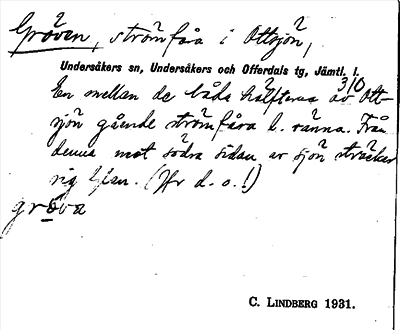 Gröven, strömfåra i Ottsjön,
Undersåkers sn, Undersåkers och Offerdals tg, Jämtl. l.
310
En mellan de båda hälfterna av Ott-
sjön gående strömfåra l. ränna. Från
denna mot södra sidan av sjön sträcker
sig (Jfr d. o.!)
gröva
C. LINDBERG 1931.